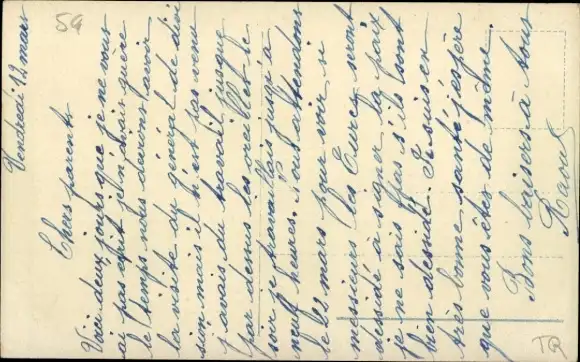 59
Vendredi 12 mars
Chers parents
Voici deux jours que je ne vous
ai pas écrit je n'avais guère
le temps nous devions avoir
la visite du général de divi
sion mais il n'est pas venu
j'avais du travail jusque
par dessus les oreilles et le
soir je travaillais jusqu'à
neuf heures. Nous attendons
le 22 mars pour voir si
messieurs les Turcs sont
dessidé a signer la paix
je ne sais pas s'ils sont
bien dessidé. Je suis en
très bonne santé j'espère
que vous êtes de même.
Bons baisers à tous
Raoul